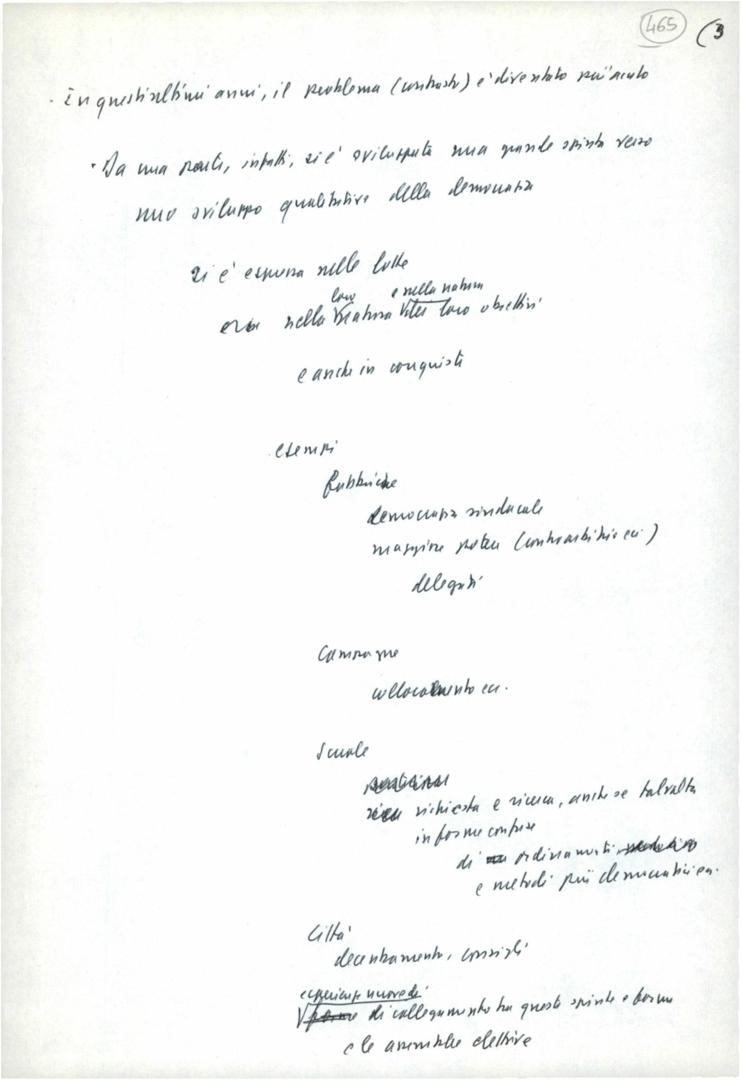 465 (3
· In questi ultimi anni, il problema (contrasto) è diventato più acuto
· Da una parte, infatti, si è sviluppata una grande spinta verso
uno sviluppo qualitativo della democrazia
si è espressa nelle lotte
loro e nella natura
nella natura loro obiettivi
e anche in conquiste
esempi
fabbriche
democrazia sindacale
maggiore potere (contrattazione ecc.)
delegati
Campagne
collocamento ecc.
Scuole
richiesta e ricerca, anche se talvolta
in forme confuse
di ordinamenti
e metodi più democratici ecc.
Città
decentramento, consigli
esperienze nuove di
di collegamento tra queste spinte e forme
e le assemblee elettive